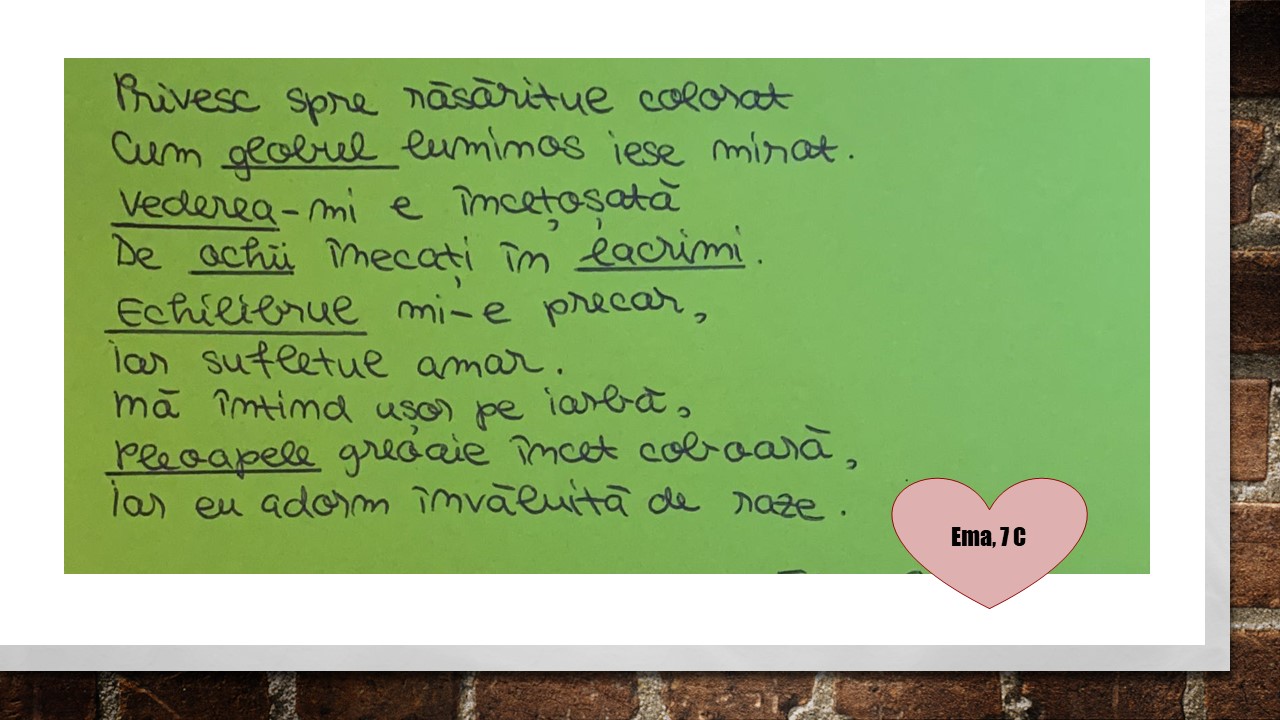 Privesc spre răsăritul colorat
Cum globul luminos iese mirat.
Vederea-mi e încețoșată
De ochii înecați în lacrimi.
Echilibrul mi-e precar,
iar sufletul amar.
mă întind ușor pe iarbă,
pleoapele greoaie încet coboară,
iar eu adorm învăluită de raze.
Ema, 7 C